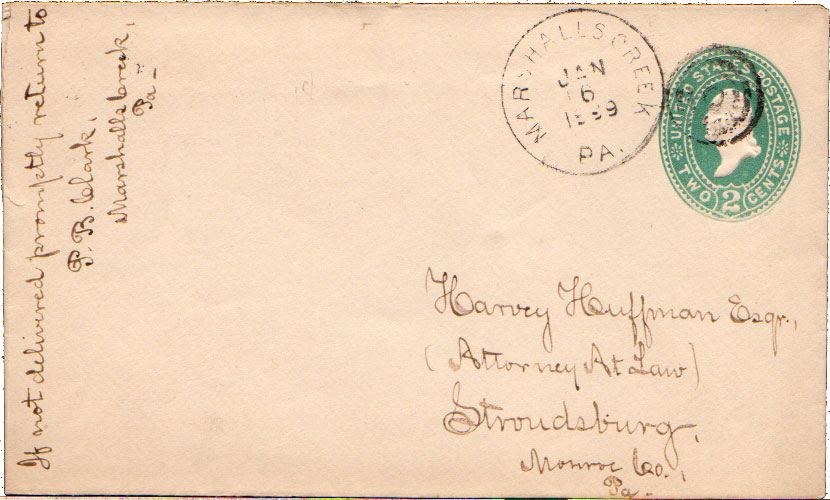 If not delivered promptly return to
P. B. Clark,
Marshallscreek,
Pa—
MARSHALLSCREEK
JAN
16
1889
PA.
UNITED STATES POSTAGE
TWO 2 CENTS
Harvey Huffman Esqr.,
(Attorney At Law)
Stroudsburg,
Monroe Co.,
Pa—